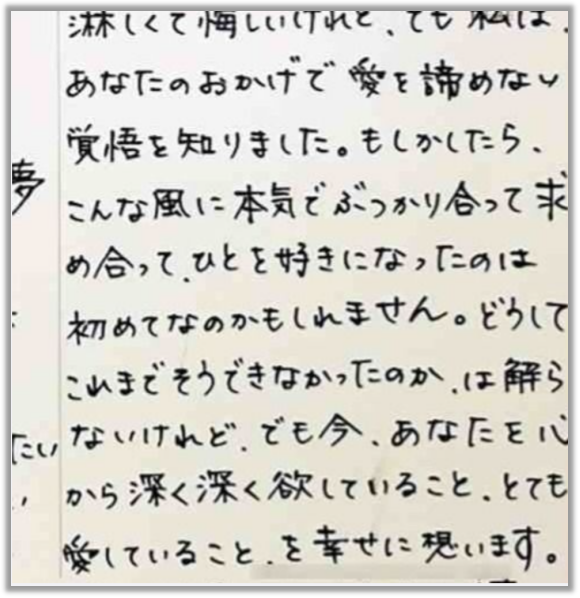 淋しくて悔しいけれど、でも私は、
あなたのおかげで愛を諦めない
覚悟を知りました。もしかしたら、
こんな風に本気でぶつかり合って求
め合って、ひとを好きになったのは
初めてなのかもしれません。どうして
これまでそうできなかったのか、は解ら
ないけれど、でも今、あなたを心
から深く深く欲していること、とても
愛していること、を幸せに想います。
夢
たい